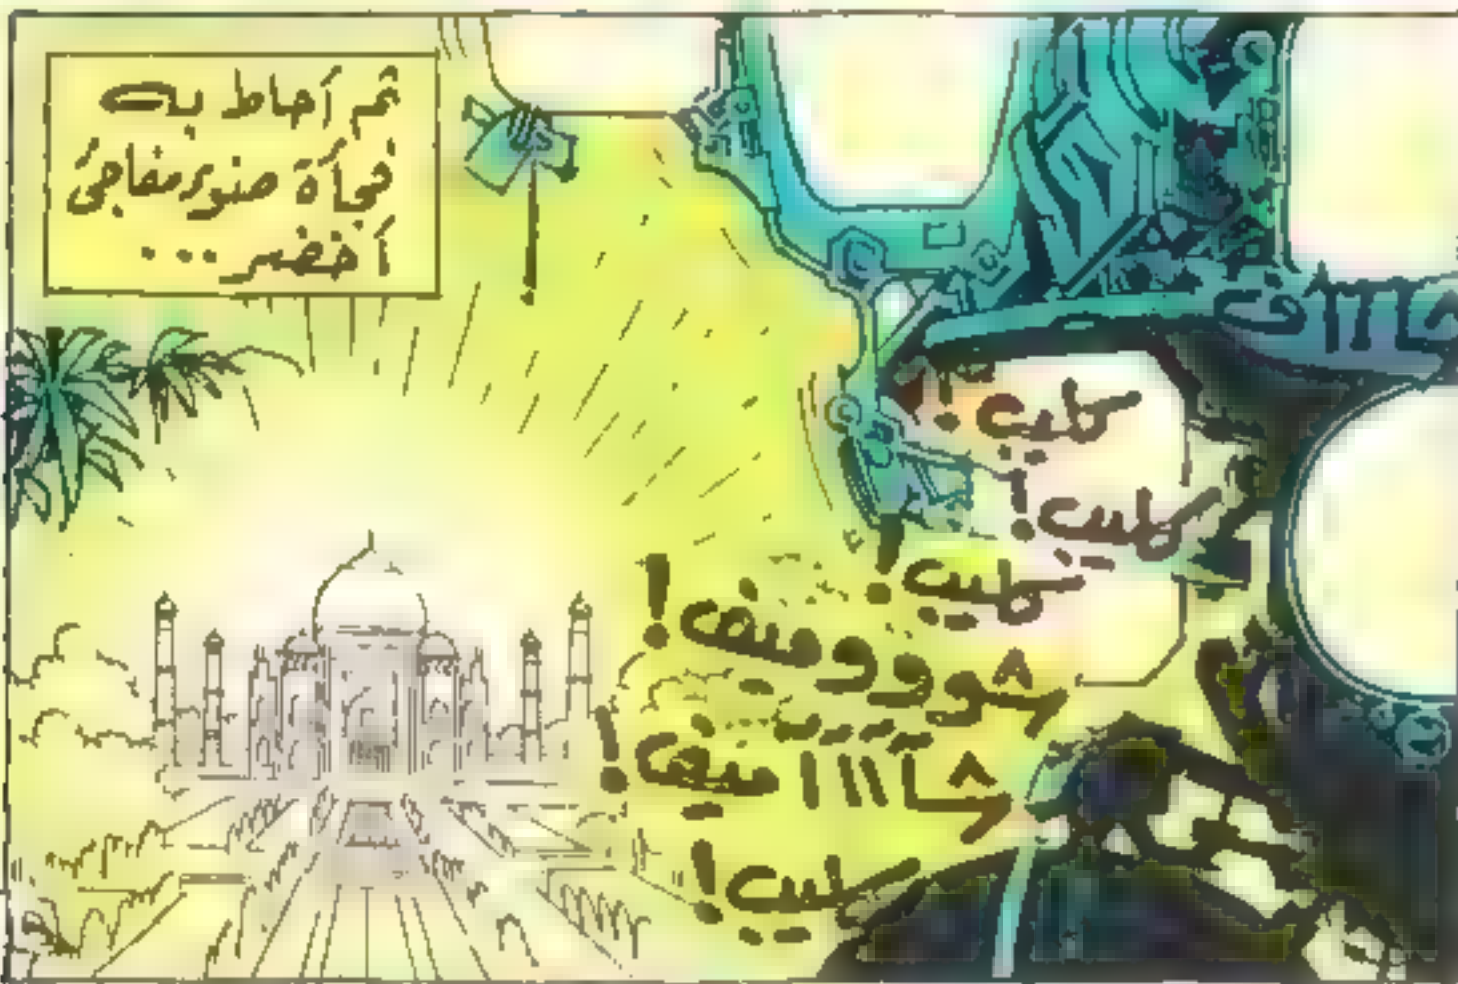 ثم أحاط به
فجأة ضوء مفاجئ
أخضر...
كليب!
كليب!
كليب!
شووووميف!
شااااميف!
كليب!